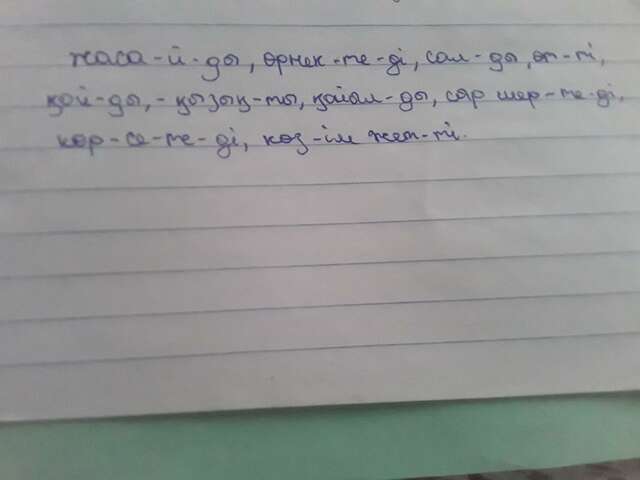 жаса-й-ды, өрнек-те-ді, сал-ды, өт-ті,
қой-ды, - қызық-ты, қайал-ды, сәр шер-те-ді,
көр-се-те-ді, көз-ім жет-ті.